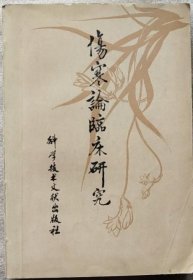 傷寒論臨床研究
科学技术文献出版社